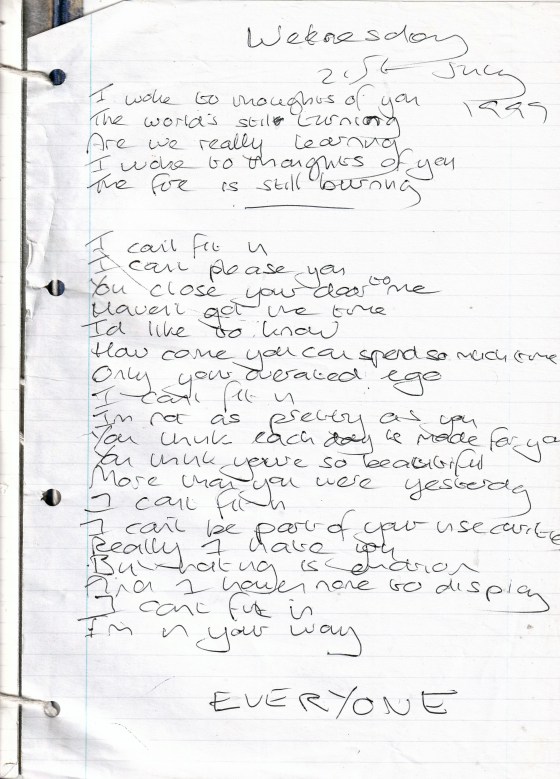 Wednesday
21st July
1999
I woke to thoughts of you
The world's still turning
Are we really learning
I woke to thoughts of you
The fire is still burning
I can't fit in
I can't please you
You close your door to me
Haven't got the time
I'd like to know
How come you can spend so much time
Only your overated ego
I can't fit in
I'm not as pretty as you
You think each day is made for yo
You think you're so beautiful
More than you were yesterday
I can't fit in
I can't be part of your
Really I hate you
But hating is emotion
And I have none to display
I can't fit in
I'm in your way
EVERYONE